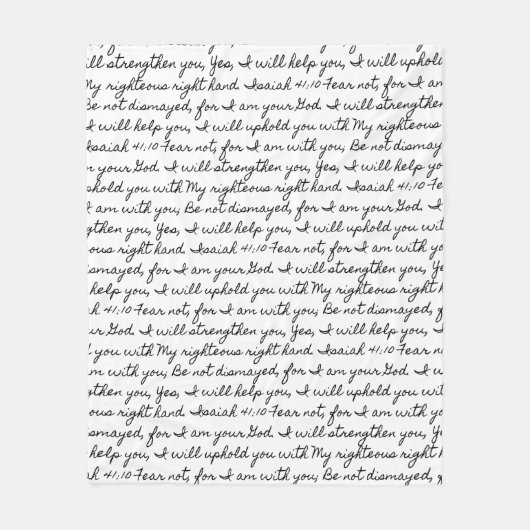 for I am your God. I will
will strengthen you, Yes, I will help you, I will uphold
My righteous right hand. Isaiah 41:10 Fear not, for I am
Be not dismayed, for I am your God. I will strengthen
I will help you, I will uphold you with My righteous
Isaiah 41:10 Fear not, for I am with you; Be not dismayed
n your God. I will strengthen you, Yes, I will help you
phold you with My righteous right hand. Isaiah 41:10 Fear
am with you; Be not dismayed, for I am your God. I
gthen you, Yes, I will help you, I will uphold you with
righteous right hand. Isaiah 41:10 Fear not, for I am with
smayed, for I am your God. I will strengthen you, Ye
help you, I will uphold you with My righteous right h
ur God. I will strengthen you, Yes, I will help you,
you with My righteous right hand. Isaiah 41:10 Fear no
m with you; Be not dismayed, for I am your God. I w
then you, Yes, I will help you, I will uphold you with
ous right hand. Isaiah 41:10 Fear not, for I am with you
smayed, for I am your God. I will strengthen you, Yes,
you, I will uphold you with My righteous right hand
h 41:10 Fear not, for I am with you; Be not dismayed,